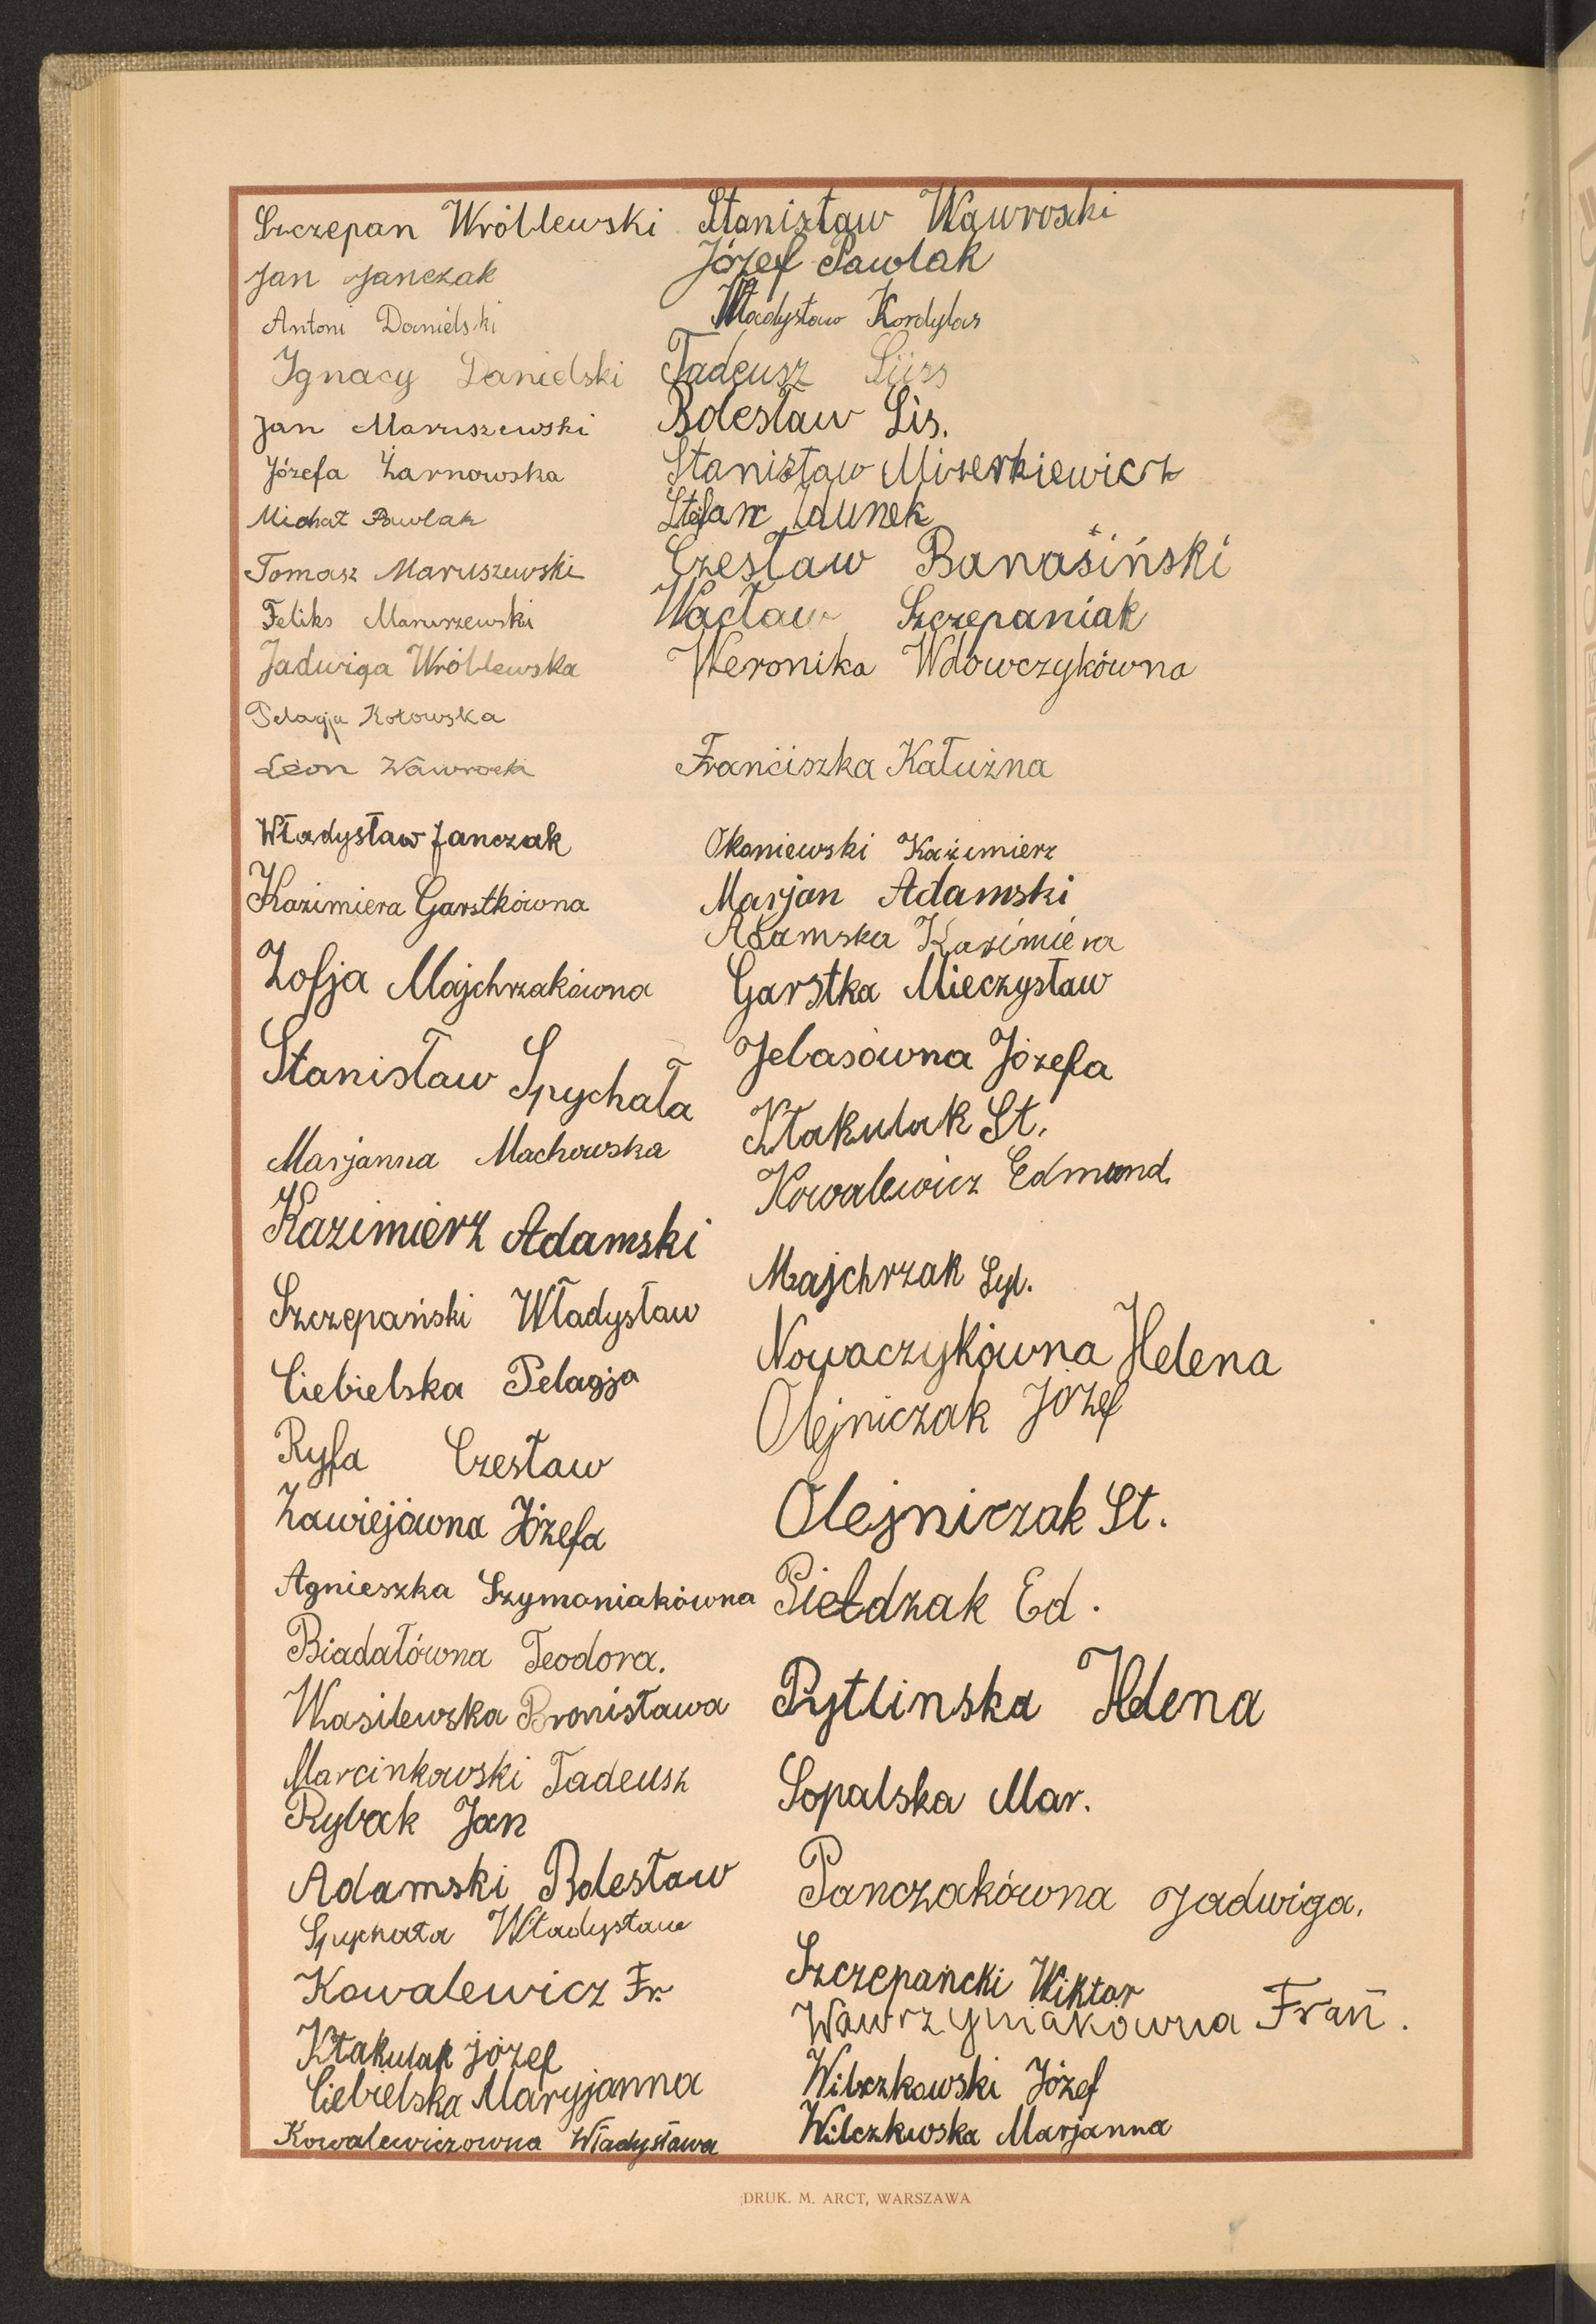 Szczepan Wróblewski
Jan Janczak
Antoni Danielski
Ignacy Danielski
Jan Maruszewski
Józefa Żarnowska
Michał Pawlak
Tomasz Maruszewski
Feliks Maruszewski
Jadwiga Wróblewska
Pelagja Kotowska
Leon Wawrocki
Władysław Janczak
Kazimiera Garstkówna
Zofja Majchrzakówna
Stanisław Spychała
Marjanna Machowska
Kazimierz Adamski
Szczepański Władysław
Ciebielska Pelagja
Ryfa Czesław
Zawiejówna Józefa
Agnieszka Szymoniakówna
Biadałówna Teodora.
Wasilewska Bronisława
Marcinkowski Tadeusz
Rybak Jan
Adamski Bolesław
Spychała Władysław
Kowalewicz Fr.
Ktakulak Józef
Ciebielska Maryjanna
Kowalewiczowna Władysława
Stanisław Wawroski
Józef Pawlak
Władysław Kordylas
Tadeusz
Bolesław Lis.
Stanisław Miserkiewicz
Stefan
Czesław Banasiński
Wacław Szczepaniak
Weronika Wdowczykówna
Franciszka Kałużna
Okoniewski Kazimierz
Marjan Adamski
Adamska Kazimiera
Garstka Mieczysław
Jebasówna Józefa
Ktakulak St.
Kowalewicz Edmund.
Majchrzak Syl.
Nowaczykówna Helena
Olejniczak Józef
Olejniczak St.
Piełdzak Ed.
Pytlinska Helena
Sopalska Mar.
Panczakówna Jadwiga.
Szczepańcki Wiktor
Wawrzyniakowna Frań.
Wilczkowski Józef
Wilczkwska Marjanna
DRUK. M. ARCT, WARSZAWA